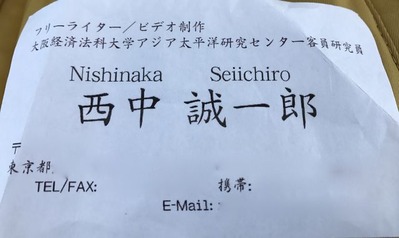 フリーライター／ビデオ制作
大阪経済法科大学アジア太平洋研究センター客員研究員
Nishinaka Seiichiro
西中 誠一郎
〒
東京都
TEL/FAX: 携帯:
E-Mail: